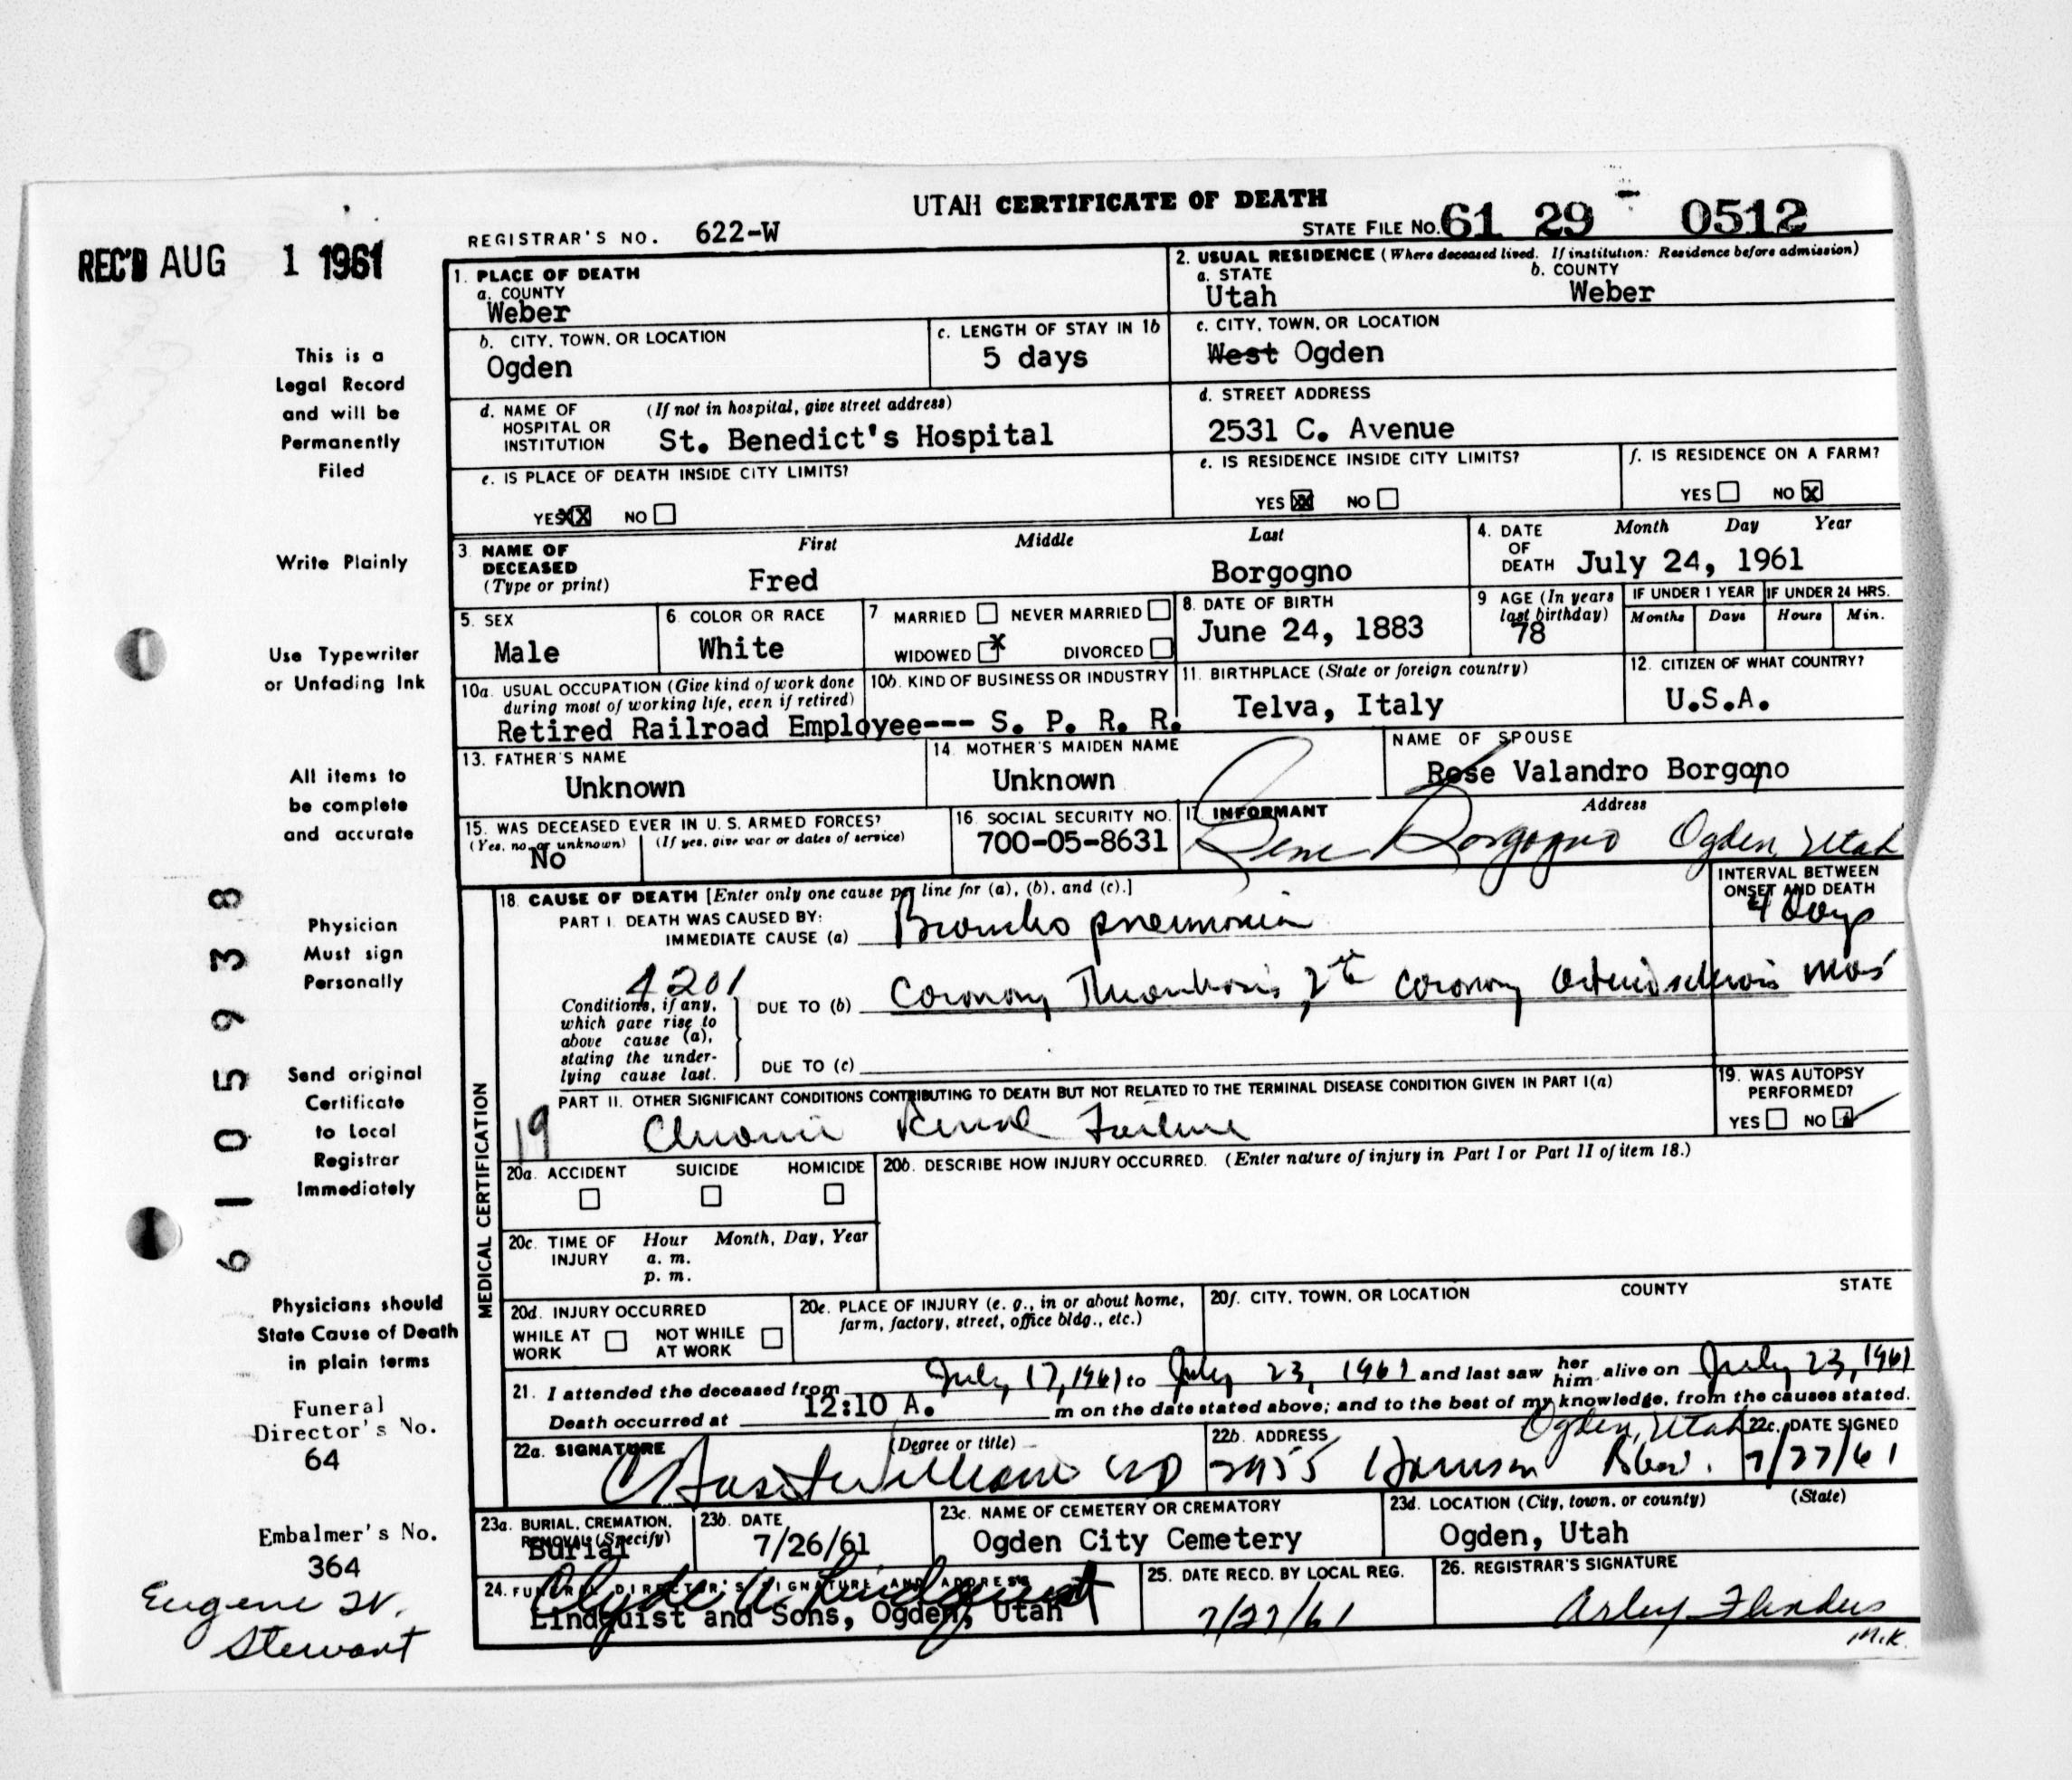 UTAH CERTIFICATE OF DEATH
REGISTRAR'S NO. 622-W
STATE FILE NO. 61 29 0512
REC'D AUG 1 1961
This is a
Legal Record
and will be
Permanently
Filed
Write Plainly
Use Typewriter
or Unfading Ink
All items to
be complete
and accurate
Physician
Must sign
Personally
Send original
Certificate
to Local
Registrar
Immediately
Physicians should
State Cause of Death
in plain terms
Funeral
Director's No.
64
Embalmer's No.
364
Eugene W.
Stewart
6105938
1. PLACE OF DEATH
a. COUNTY
Weber
2. USUAL RESIDENCE (Where deceased lived. If institution: Residence before admission)
a. STATE
Utah
b. COUNTY
Weber
b. CITY, TOWN, OR LOCATION
Ogden
c. LENGTH OF STAY IN 1b
5 days
c. CITY, TOWN, OR LOCATION
West Ogden
d. NAME OF HOSPITAL OR INSTITUTION
(If not in hospital, give street address)
St. Benedict's Hospital
d. STREET ADDRESS
2531 C. Avenue
e. IS PLACE OF DEATH INSIDE CITY LIMITS?
YES XX NO
e. IS RESIDENCE INSIDE CITY LIMITS?
YES XX NO
f. IS RESIDENCE ON A FARM?
YES NO X
3. NAME OF DECEASED
(Type or print)
First Middle Last
Fred Borgogno
4. DATE OF DEATH
Month Day Year
July 24, 1961
5. SEX
Male
6. COLOR OR RACE
White
7. MARRIED NEVER MARRIED
WIDOWED X DIVORCED
8. DATE OF BIRTH
June 24, 1883
9. AGE (In years
last birthday)
78
IF UNDER 1 YEAR
Months Days
IF UNDER 24 HRS.
Hours Min.
10a. USUAL OCCUPATION (Give kind of work done
during most of working life, even if retired)
10b. KIND OF BUSINESS OR INDUSTRY
Retired Railroad Employee--- S. P. R. R.
11. BIRTHPLACE (State or foreign country)
Telva, Italy
12. CITIZEN OF WHAT COUNTRY?
U.S.A.
13. FATHER'S NAME
Unknown
14. MOTHER'S MAIDEN NAME
Unknown
NAME OF SPOUSE
Rose Valandro Borgogno
15. WAS DECEASED EVER IN U. S. ARMED FORCES?
(Yes, no, or unknown) (If yes, give war or dates of service)
No
16. SOCIAL SECURITY NO.
700-05-8631
17. INFORMANT Address
Rene Borgogno Ogden, Utah
18. CAUSE OF DEATH [Enter only one cause per line for (a), (b), and (c).]
INTERVAL BETWEEN
ONSET AND DEATH
PART I. DEATH WAS CAUSED BY:
IMMEDIATE CAUSE (a) Broncho pneumonia 4 days
4201
Conditions, if any,
which gave rise to
above cause (a),
stating the under-
lying cause last.
DUE TO (b) Coronary Thrombosis, 2° to coronary arteriosclerosis mos
DUE TO (c)
PART II. OTHER SIGNIFICANT CONDITIONS CONTRIBUTING TO DEATH BUT NOT RELATED TO THE TERMINAL DISEASE CONDITION GIVEN IN PART I(a)
19 Chronic Renal Failure
19. WAS AUTOPSY
PERFORMED?
YES NO
MEDICAL CERTIFICATION
20a. ACCIDENT SUICIDE HOMICIDE
20b. DESCRIBE HOW INJURY OCCURRED. (Enter nature of injury in Part I or Part II of item 18.)
20c. TIME OF INJURY
Hour Month, Day, Year
a. m.
p. m.
20d. INJURY OCCURRED
WHILE AT WORK NOT WHILE AT WORK
20e. PLACE OF INJURY (e. g., in or about home,
farm, factory, street, office bldg., etc.)
20f. CITY, TOWN, OR LOCATION COUNTY STATE
21. I attended the deceased from July 17, 1961 to July 23, 1961 and last saw her him alive on July 23, 1961
Death occurred at 12:10 A. m on the date stated above; and to the best of my knowledge, from the causes stated.
22a. SIGNATURE (Degree or title)
MD
22b. ADDRESS
Ogden, Utah
2955 Harrison Blvd.
22c. DATE SIGNED
7/27/61
23a. BURIAL, CREMATION,
REMOVAL (Specify)
Burial
23b. DATE
7/26/61
23c. NAME OF CEMETERY OR CREMATORY
Ogden City Cemetery
23d. LOCATION (City, town, or county) (State)
Ogden, Utah
24. FUNERAL DIRECTOR'S SIGNATURE AND ADDRESS
Clyde W. Lindquist
Lindquist and Sons, Ogden, Utah
25. DATE RECD. BY LOCAL REG.
7/27/61
26. REGISTRAR'S SIGNATURE
Arley Flinders
M.K.